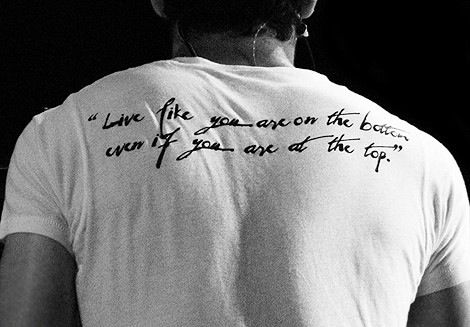 “Live like you are on the bottom
even if you are at the top.”